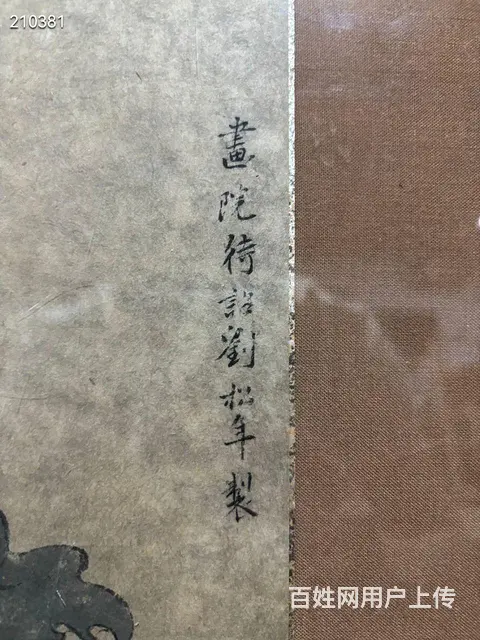 210381
畫院待詔劉松年製
百姓网用户上传